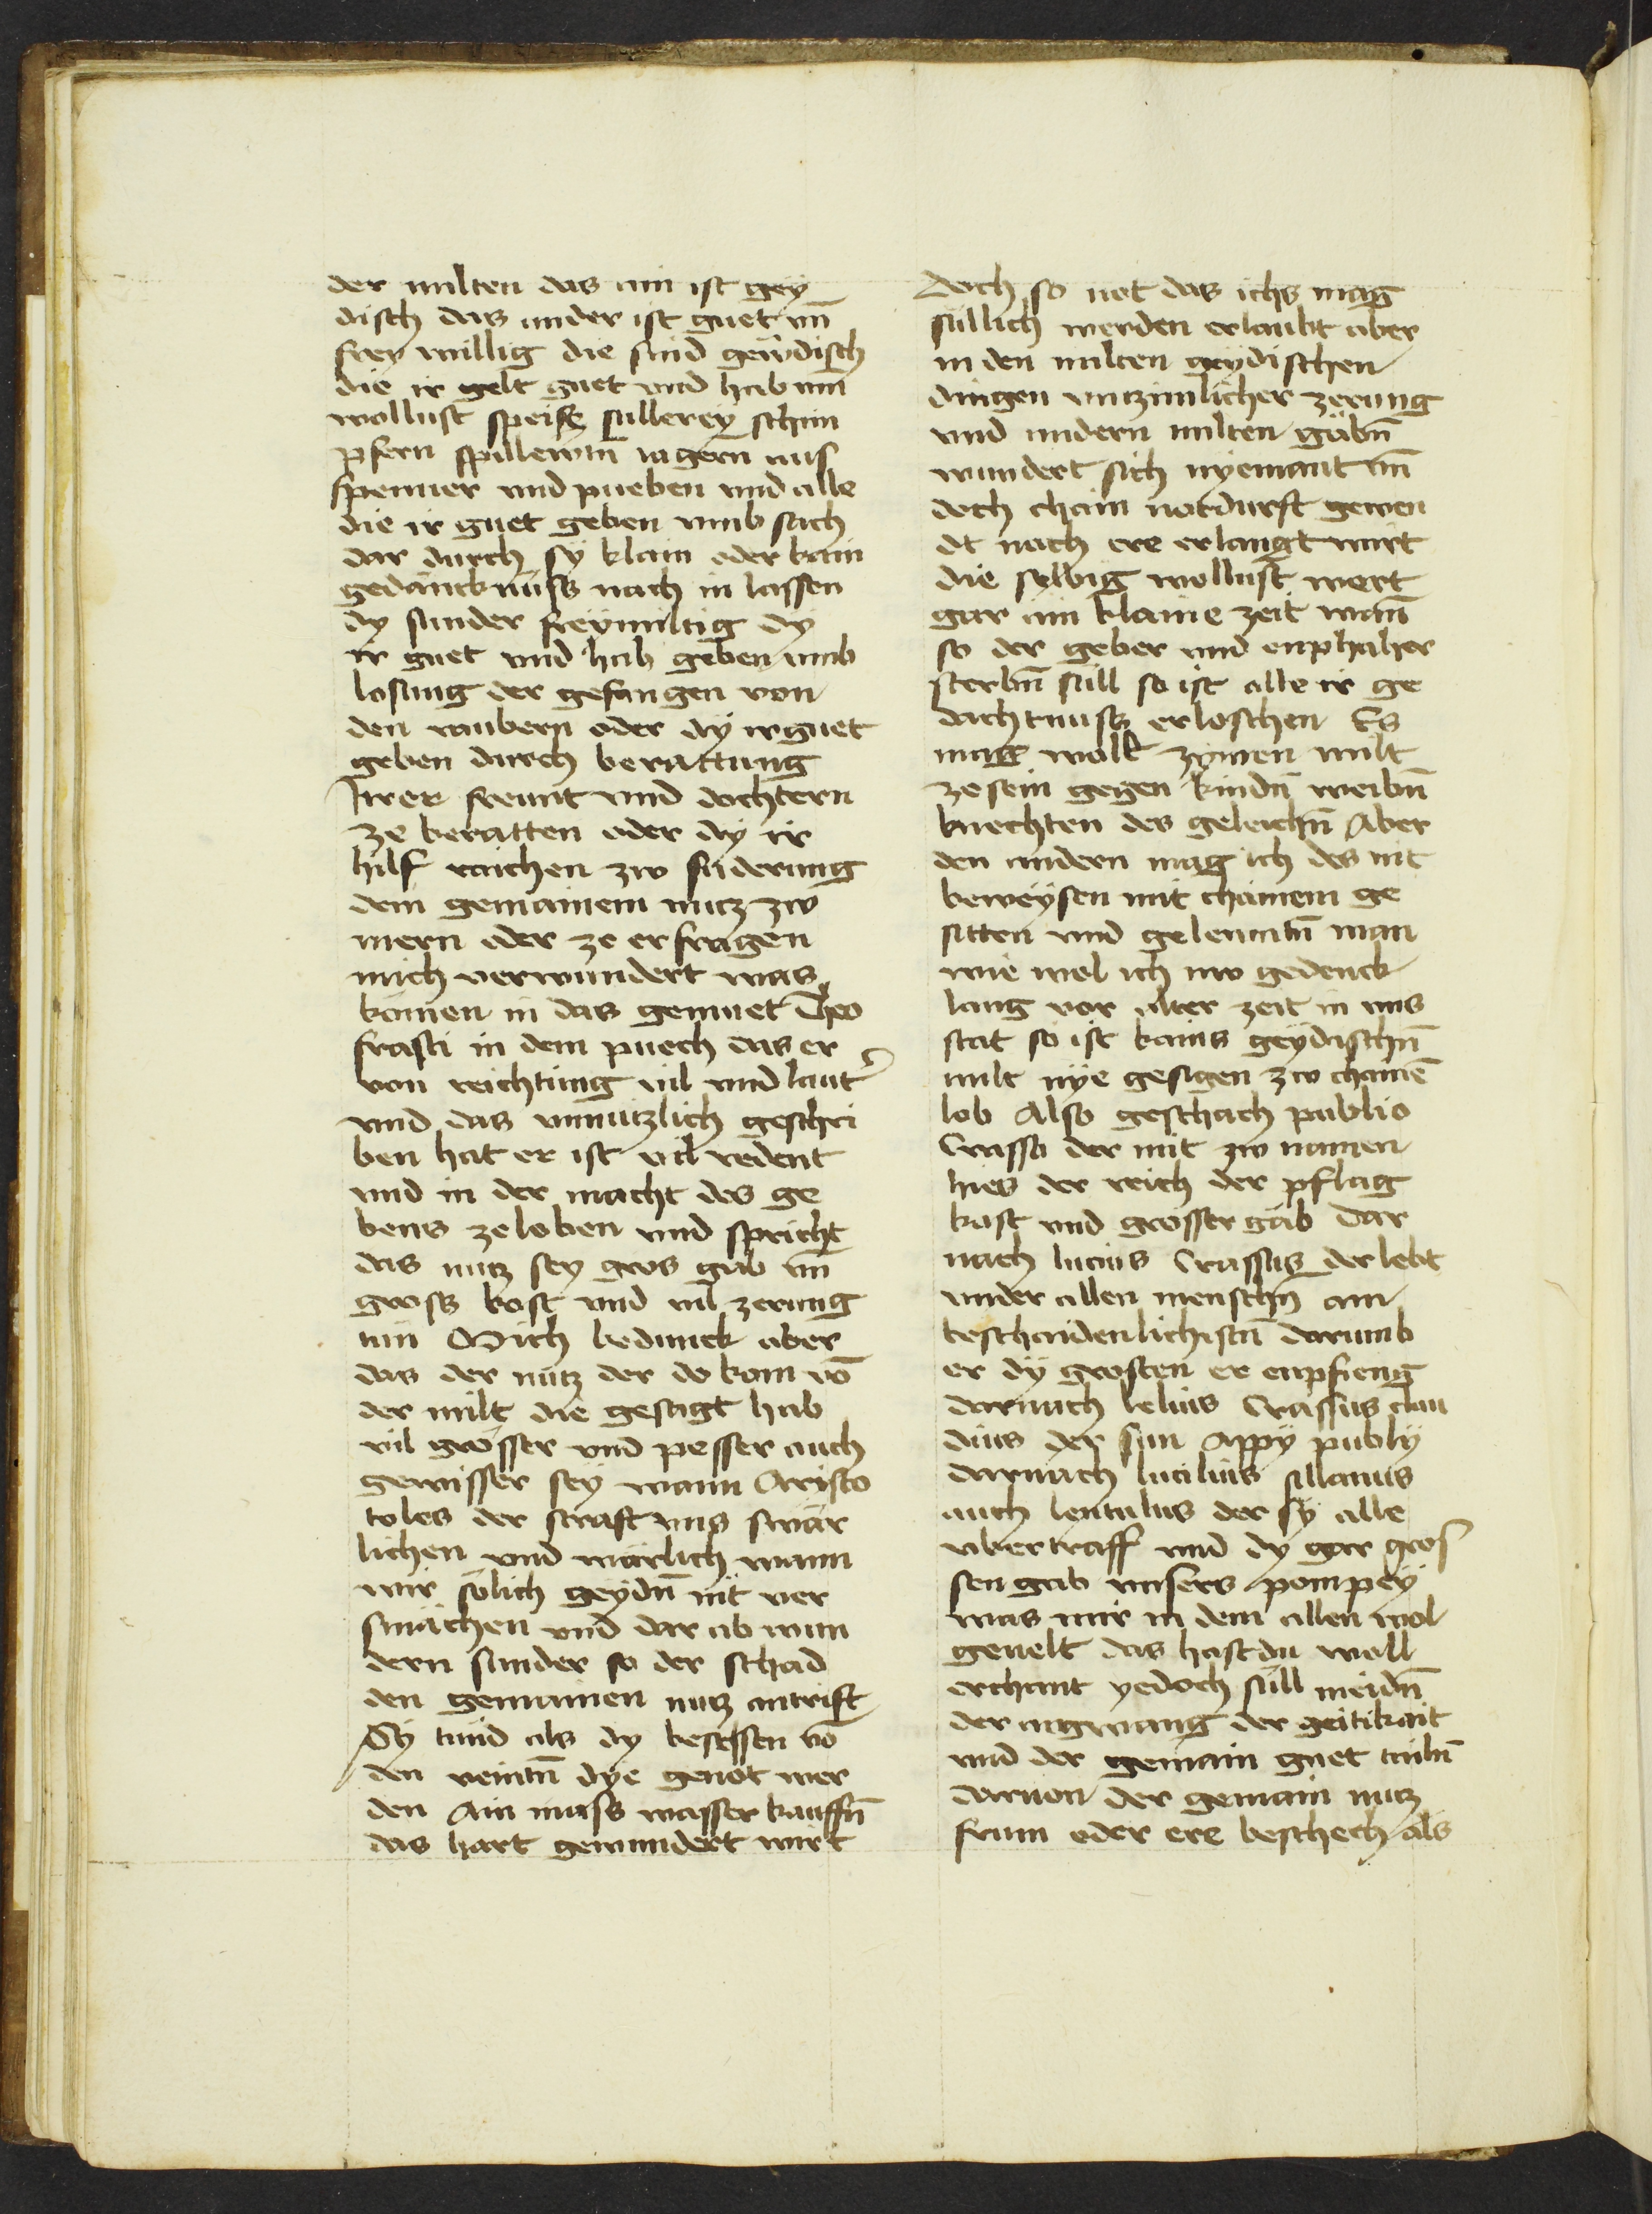 der milten das ain ist gey
disch das ander ist guet vn̄
frey willig die sind geẅdisch
die ir gelt guet vnd hab um̄
wollust speis füllerey schim
pfern spillewtn̄ jagern aus
spenner vnd pueben vnd alle
die ir guet geben vmb sach
dar durch sy klain oder kain
gedancknuss nach in lassen
dy sunder freymiltig dy
ir guet vnd hab geben vmb
losung der gefangen von
den raubern oder dy ir guet
geben durch berattung
Irer freunt vnd dochtern
ze beratten oder dy ir
hilf raichen zw füderung
dem gemainem nutz zw
mern oder ze erfragen
mich verwundert was
kömen in das gemuet Theo
frasti in dem puech das er
von reichtung vil vnd laut̾
vnd das vnnutzlich geschri
ben hat er ist vil redent
vnd in der macht des ge
bens ze loben vnd spricht
das nutz sey gros gab vn̄
gross kost vnd vil zerung
nin Mich bedunck aber
das der nutz der do kom vō
der milt die gesagt hab
vil grösser vnd pesser auch
gewisser sey wann Aristo
toles der straft vns swär
lichen vnd warlich wann
wir sölich geydn̄ nit ver
smächen vnd dar ab wun
dern sunder so der schad
den gemainen nutz antrift
Sy tund als dy besessen vō
den veintn̄ dye genöt wer
den Ain mass wasser kauffn̄
das hart gewundert wirt
Doch so not das ichs mag
süllich werden erlaubt aber
in den milten geydischen
dingen vnzimlicher zerung
vnd andern milten gäbn̄
wundert sich nyemant vn̄
doch chain notdurft gewen
dt noch ere erlangt wirt
die selbig wollust wert
gar ain klaine zeit wan̄
so der geber vnd enphaher
sterbn̄ süll so ist alle ir ge
dachtnuss erloschen Es
mag woll zymen milt
ze sein gegen kindn̄ weibn̄
knechten des geleichn̄ Aber
den andern mag ich des nit
beweysen mit chainem ge
sitten vnd gelewntn̄ man
wie wol ich nw gedenck
lang vor alter zeit in vns
stat so ist kains geydischn̄
milt nye gesigen zw chainē
lob Also geschach publio
Crasso der mit zw namen
hies der reich der pflag
kost vnd grosser gab Dar
nach lucius Crassus der lebt
vnder allen menschn̄ am
beschaidenlichistn̄ darumb
er dy grosten er enpfieng
darnach lelius Crassus clau
dius der sun Appy publy
darnach lucilius sillanus
auch lentulus der sy alle
vbertraff vnd dy gar gros
sen gab vnsers pompey
was mir in dem allen wol
geuelt das hast du woll
erchant yedoch süll meidn̄
der argwang der geitikait
vnd der gemain guet
daruon der gemain nutz
frum oder ere beschech als